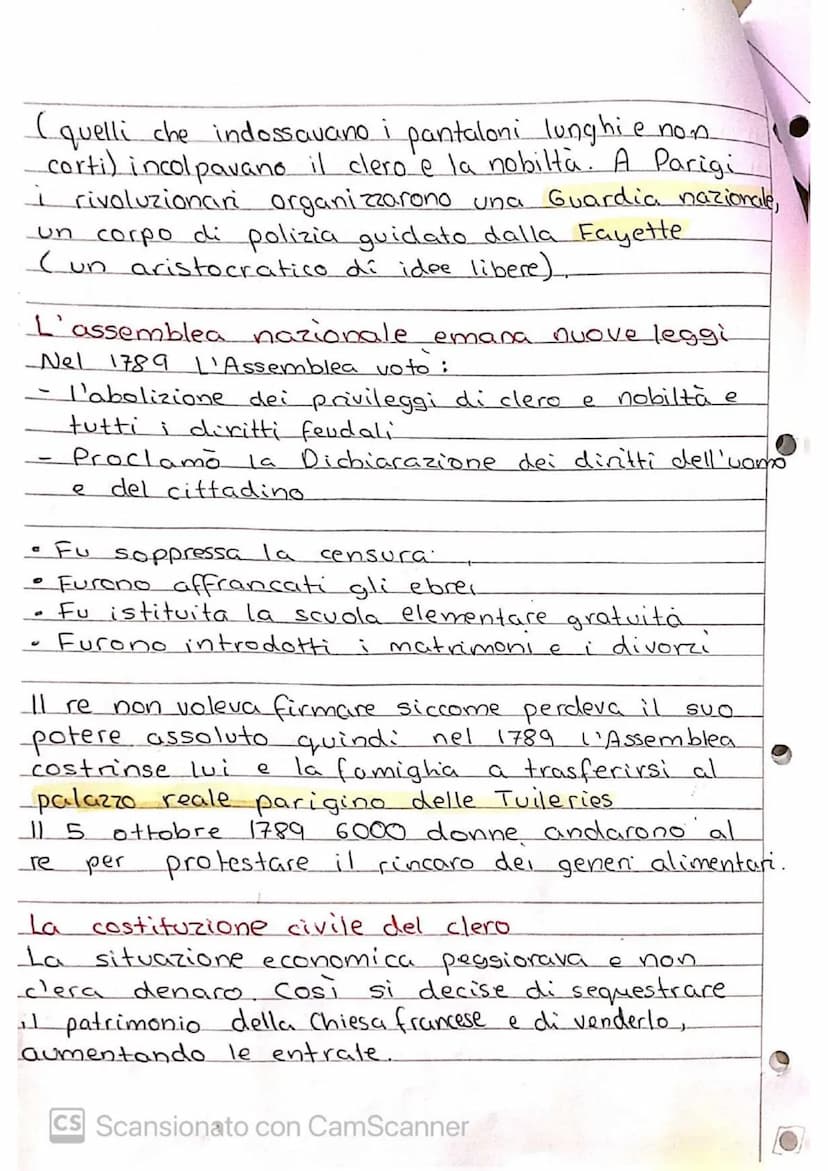 (quelli che indossavano i pantaloni lunghi e non
corti) incolpavano il clero e la nobiltà. A Parigi
i rivoluzionari organizzarono una Guardia nazionale,
un corpo di polizia guidato dalla Fayette
(un aristocratico di idee libere).
L'assemblea nazionale emana nuove leggi
Nel 1789 L'Assemblea votò:
- l'abolizione dei privileggi di clero e nobiltà e
tutti i diritti feudali
- Proclamò la Dichiarazione dei diritti dell'uomo
e del cittadino
• Fu soppressa la censura
• Furono affrancati gli ebrei
• Fu istituita la scuola elementare gratuità
• Furono introdotti i matrimoni e i divorzi
Il re non voleva firmare siccome perdeva il suo
potere assoluto quindi nel 1789 l'Assemblea
costrinse lui e la famiglia a trasferirsi al
palazzo reale parigino delle Tuileries
Il 5 ottobre 1789 6000 donne andarono al
re per protestare il rincaro dei generi alimentari.
La costituzione civile del clero
La situazione economica peggiorava e non
c'era denaro. Così si decise di sequestrare
il patrimonio della Chiesa francese e di venderlo,
aumentando le entrate.
CS Scansionato con CamScanner